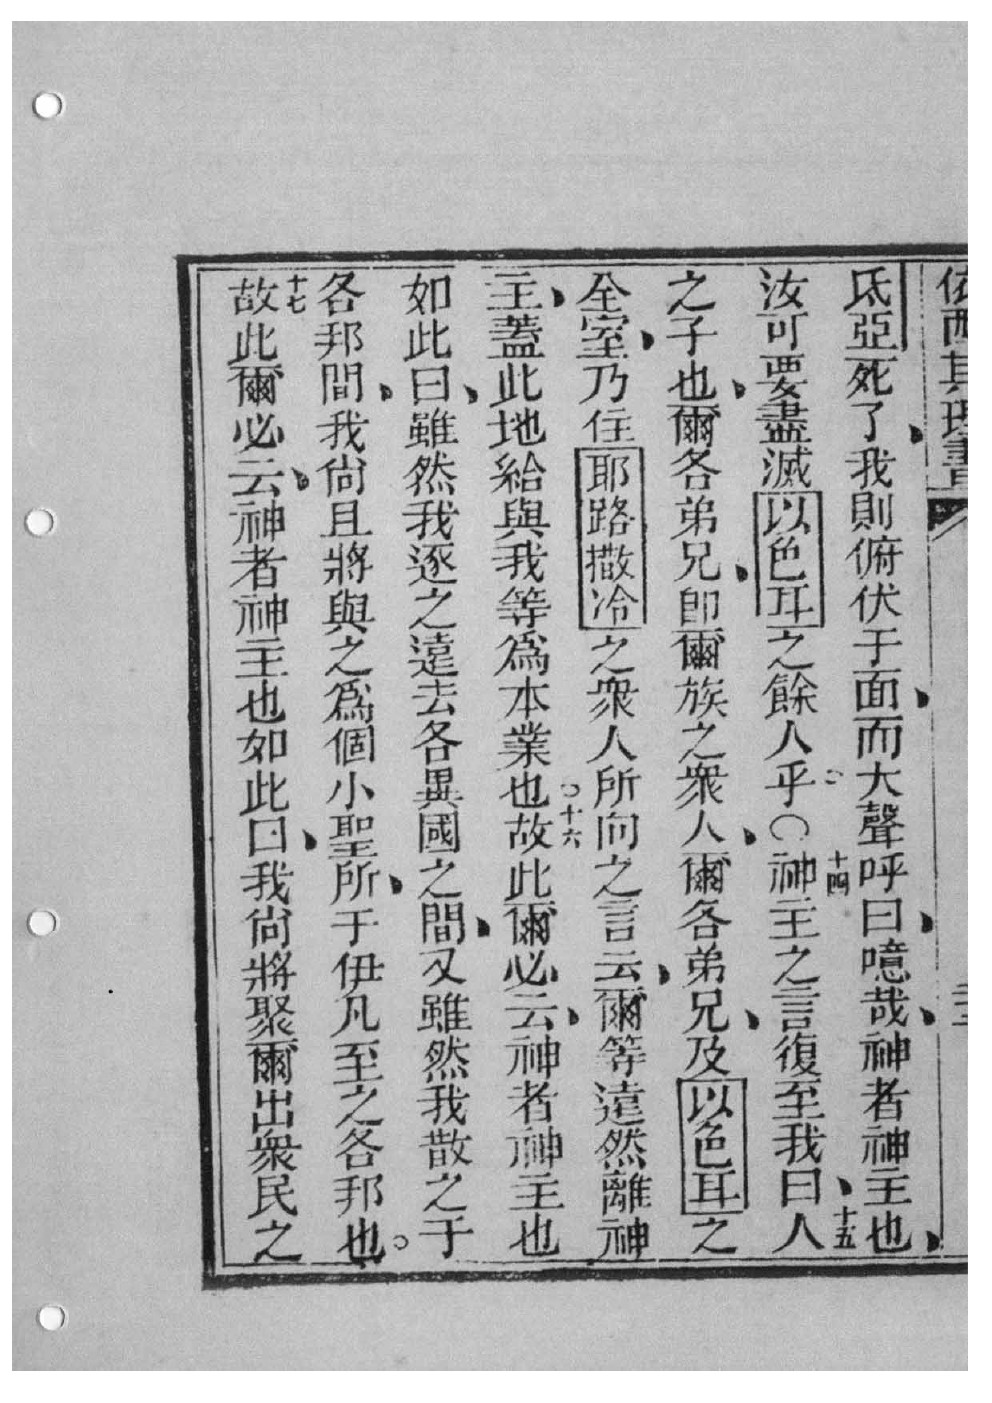 依西其理書
氐亞死了、我則俯伏于面、而大聲呼曰、噫哉、神者神主也、
汝可要盡滅以色耳之餘人乎○十四神主之言復至我曰、十五人
之子也、爾各弟兄、即爾族之衆人、爾各弟兄、及以色耳之
全室、乃住耶路撒冷之衆人所向之言云、爾等遠然離神
主、蓋此地給與我等爲本業也○十六故此爾必云、神者神主也
如此曰、雖然我逐之遠去各異國之間、又雖然我散之于
各邦間、我尙且將與之爲個小聖所、于伊凡至之各邦也。
十七故此爾必云、神者神主也如此曰、我尙將聚爾出衆民之